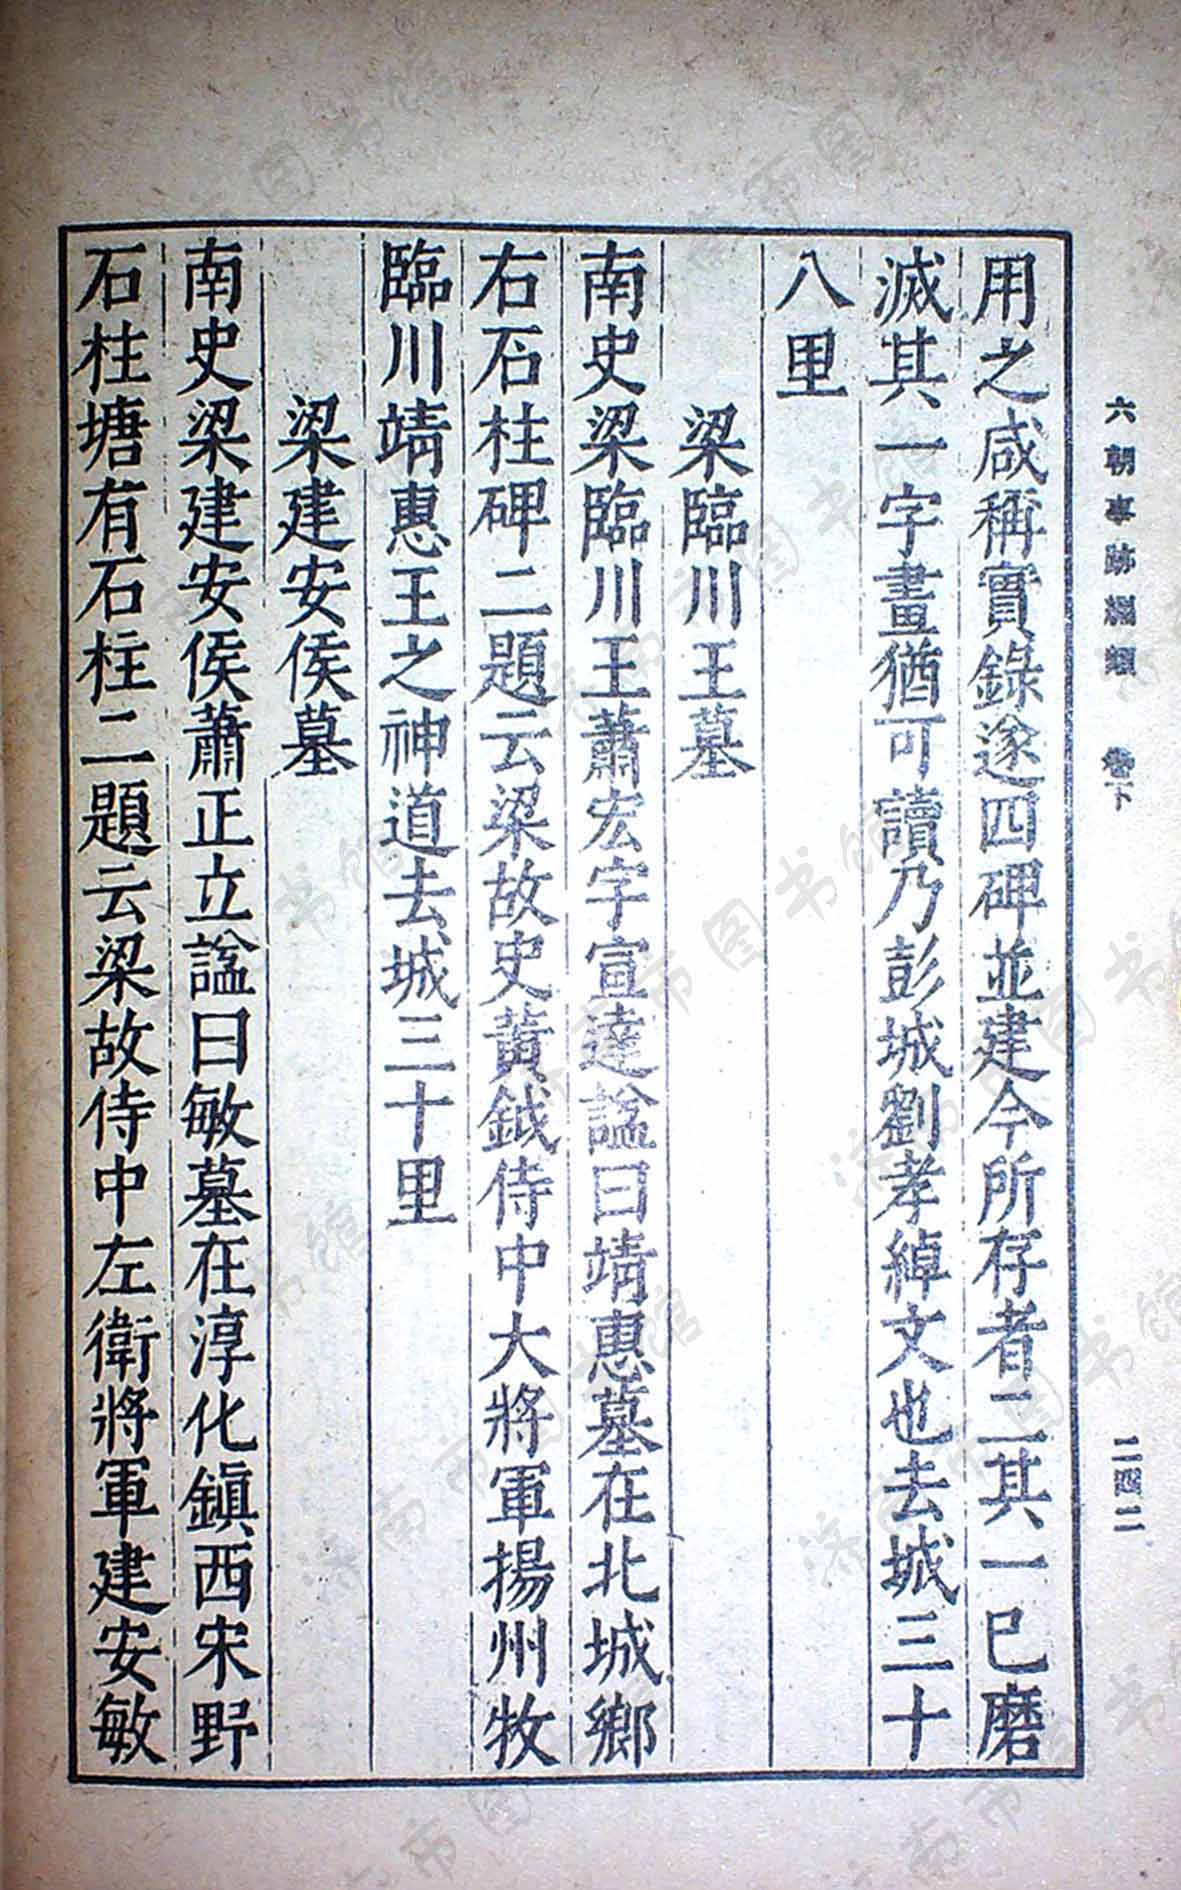 六朝事跡編類 卷下 二四二
用之咸稱實錄遂四碑並建今所存者二其一已磨
滅其一字畫猶可讀乃彭城劉孝綽文也去城三十
八里
梁臨川王墓
南史梁臨川王蕭宏字宣達諡曰靖惠墓在北城鄉
右石柱碑二題云梁故史黃鉞侍中大將軍揚州牧
臨川靖惠王之神道去城三十里
梁建安侯墓
南史梁建安侯蕭正立諡曰敏墓在淳化鎮西宋野
石柱塘有石柱二題云梁故侍中左衛將軍建安敏
济南市图书馆